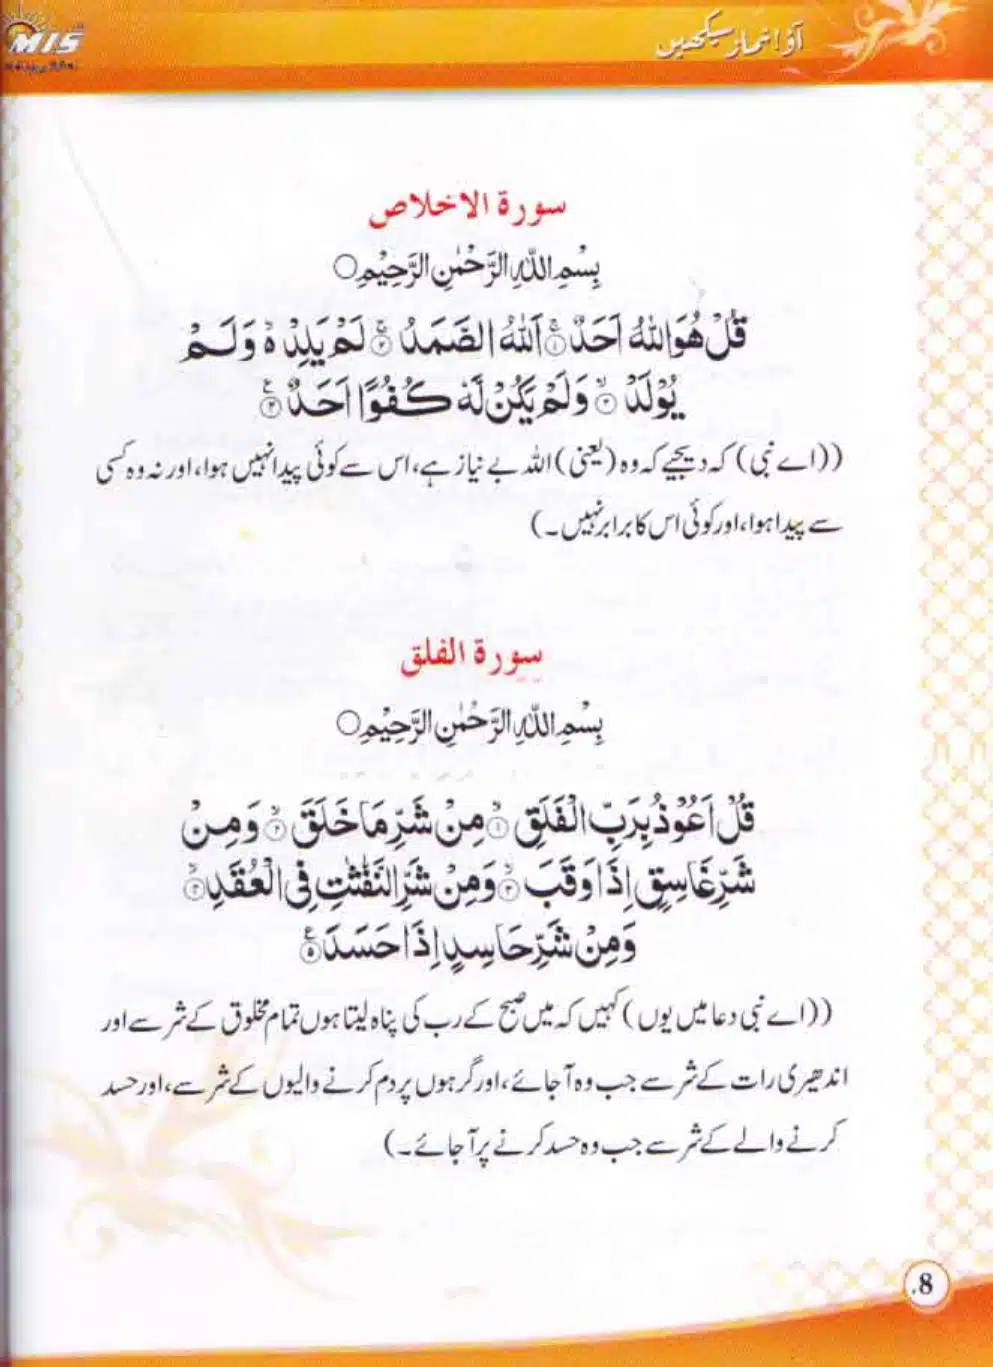 MIS
آؤ! نماز سیکھیں
سورة الاخلاص
بِسْمِ اللّٰهِ الرَّحْمٰنِ الرَّحِيْمِ ○
قُلْ هُوَ اللّٰهُ اَحَدٌ ۚ﴿۱﴾ اَللّٰهُ الصَّمَدُ ۚ﴿۲﴾ لَمْ يَلِدْ ۙ وَلَمْ
يُوْلَدْ ۙ﴿۳﴾ وَلَمْ يَكُنْ لَّهٗ كُفُوًا اَحَدٌ ۠﴿۴﴾
((اے نبی) کہ دیجیے کہ وہ (یعنی) اللہ بے نیاز ہے، اس سے کوئی پیدا نہیں ہوا، اور نہ وہ کسی
سے پیدا ہوا، اور کوئی اس کا برابر نہیں۔)
سورة الفلق
بِسْمِ اللّٰهِ الرَّحْمٰنِ الرَّحِيْمِ ○
قُلْ اَعُوْذُ بِرَبِّ الْفَلَقِ ۙ﴿۱﴾ مِنْ شَرِّ مَا خَلَقَ ۙ﴿۲﴾ وَمِنْ
شَرِّ غَاسِقٍ اِذَا وَقَبَ ۙ﴿۳﴾ وَمِنْ شَرِّ النَّفّٰثٰتِ فِي الْعُقَدِ ۙ﴿۴﴾
وَمِنْ شَرِّ حَاسِدٍ اِذَا حَسَدَ ۠﴿۵﴾
((اے نبی دعا میں یوں) کہیں کہ میں صبح کے رب کی پناہ لیتا ہوں تمام مخلوق کے شر سے اور
اندھیری رات کے شر سے جب وہ آ جائے، اور گرہوں پر دم کرنے والیوں کے شر سے، اور حسد
کرنے والے کے شر سے جب وہ حسد کرنے پر آ جائے۔)
8.